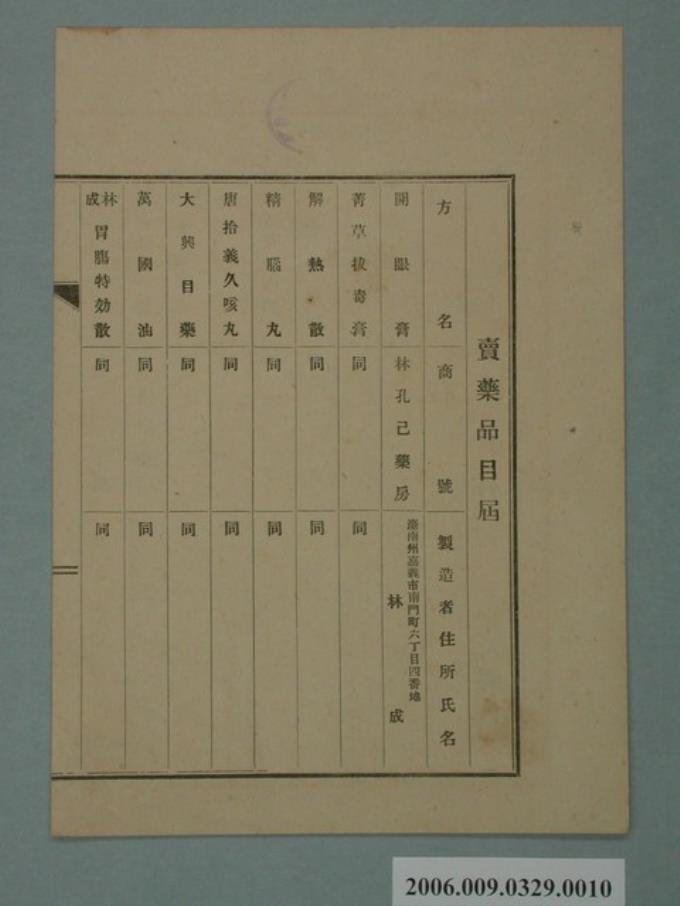 賣藥品目屆
方名 商號 製造者住所氏名
開眼膏 林孔己藥房 臺南州嘉義市南門町六丁目四番地 林成
菁草拔毒膏 同 同
解熱散 同 同
精腦丸 同 同
唐拾義久咳丸 同 同
大興目藥 同 同
萬國油 同 同
林成胃腸特効散 同 同
2006.009.0329.0010